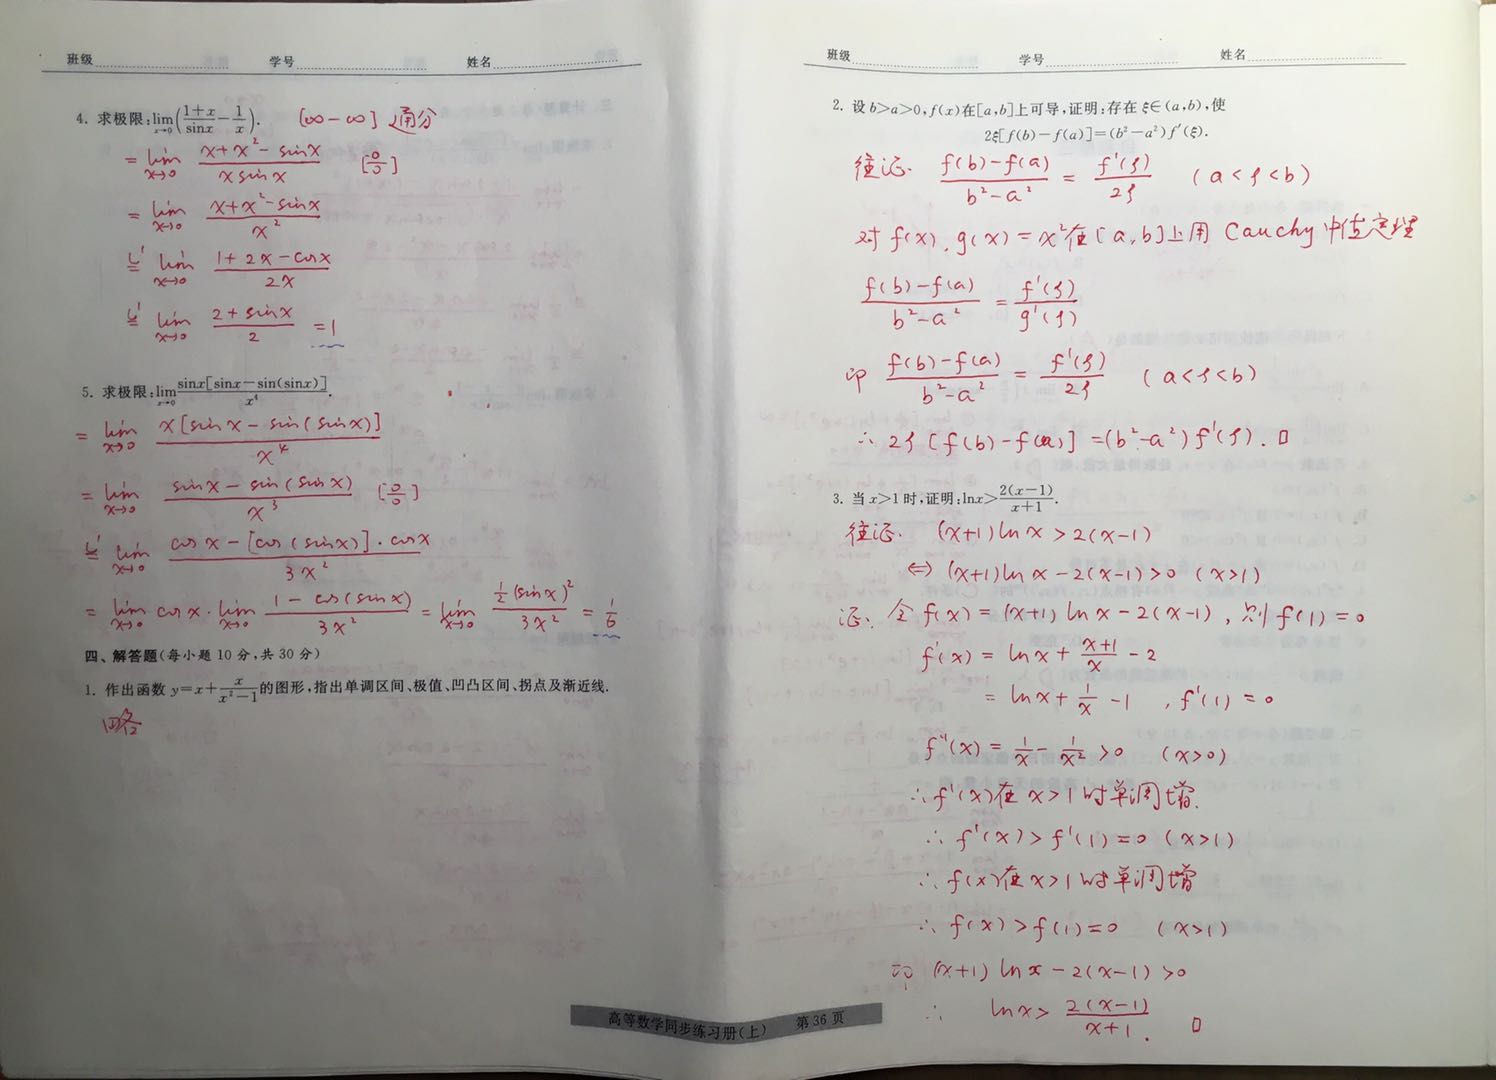 班级 学号 姓名
4. 求极限:lim_{x→0}((1+x)/sinx − 1/x). [∞−∞] 通分
= lim_{x→0} (x+x²−sinx)/(x sinx) [0/0]
= lim_{x→0} (x+x²−sinx)/x²
L'= lim_{x→0} (1+2x−cosx)/(2x)
L'= lim_{x→0} (2+sinx)/2 = 1
5. 求极限:lim_{x→0} sinx[sinx−sin(sinx)]/x⁴.
= lim_{x→0} x[sinx−sin(sinx)]/x⁴
= lim_{x→0} (sinx−sin(sinx))/x³ [0/0]
L'= lim_{x→0} (cosx−[cos(sinx)]·cosx)/(3x²)
= lim_{x→0} cosx·lim_{x→0} (1−cos(sinx))/(3x²) = lim_{x→0} (½(sinx)²)/(3x²) = 1/6
四、解答题(每小题 10 分,共 30 分)
1. 作出函数 y=x+x/(x²−1)的图形,指出单调区间、极值、凹凸区间、拐点及渐近线.
略
班级 学号 姓名
2. 设 b>a>0,f(x)在[a,b]上可导,证明:存在 ξ∈(a,b),使
2ξ[f(b)−f(a)]=(b²−a²)f′(ξ).
往证. (f(b)−f(a))/(b²−a²) = f′(ξ)/(2ξ) (a<ξ<b)
对 f(x), g(x)=x²在[a,b]上用 Cauchy中值定理
(f(b)−f(a))/(b²−a²) = f′(ξ)/g′(ξ)
即 (f(b)−f(a))/(b²−a²) = f′(ξ)/(2ξ) (a<ξ<b)
∴ 2ξ[f(b)−f(a)]=(b²−a²)f′(ξ). □
3. 当 x>1 时,证明:lnx>2(x−1)/(x+1).
往证. (x+1)lnx>2(x−1)
⇔ (x+1)lnx−2(x−1)>0 (x>1)
证. 令 f(x)=(x+1)lnx−2(x−1), 则 f(1)=0
f′(x) = lnx+(x+1)/x−2
= lnx+1/x−1 , f′(1)=0
f″(x)=1/x−1/x²>0 (x>0)
∴ f′(x)在 x>1 时单调增.
∴ f′(x)>f′(1)=0 (x>1)
∴ f(x)在 x>1 时单调增
∴ f(x)>f(1)=0 (x>1)
即 (x+1)lnx−2(x−1)>0
∴ lnx>2(x−1)/(x+1). □
高等数学同步练习册(上) 第 36 页